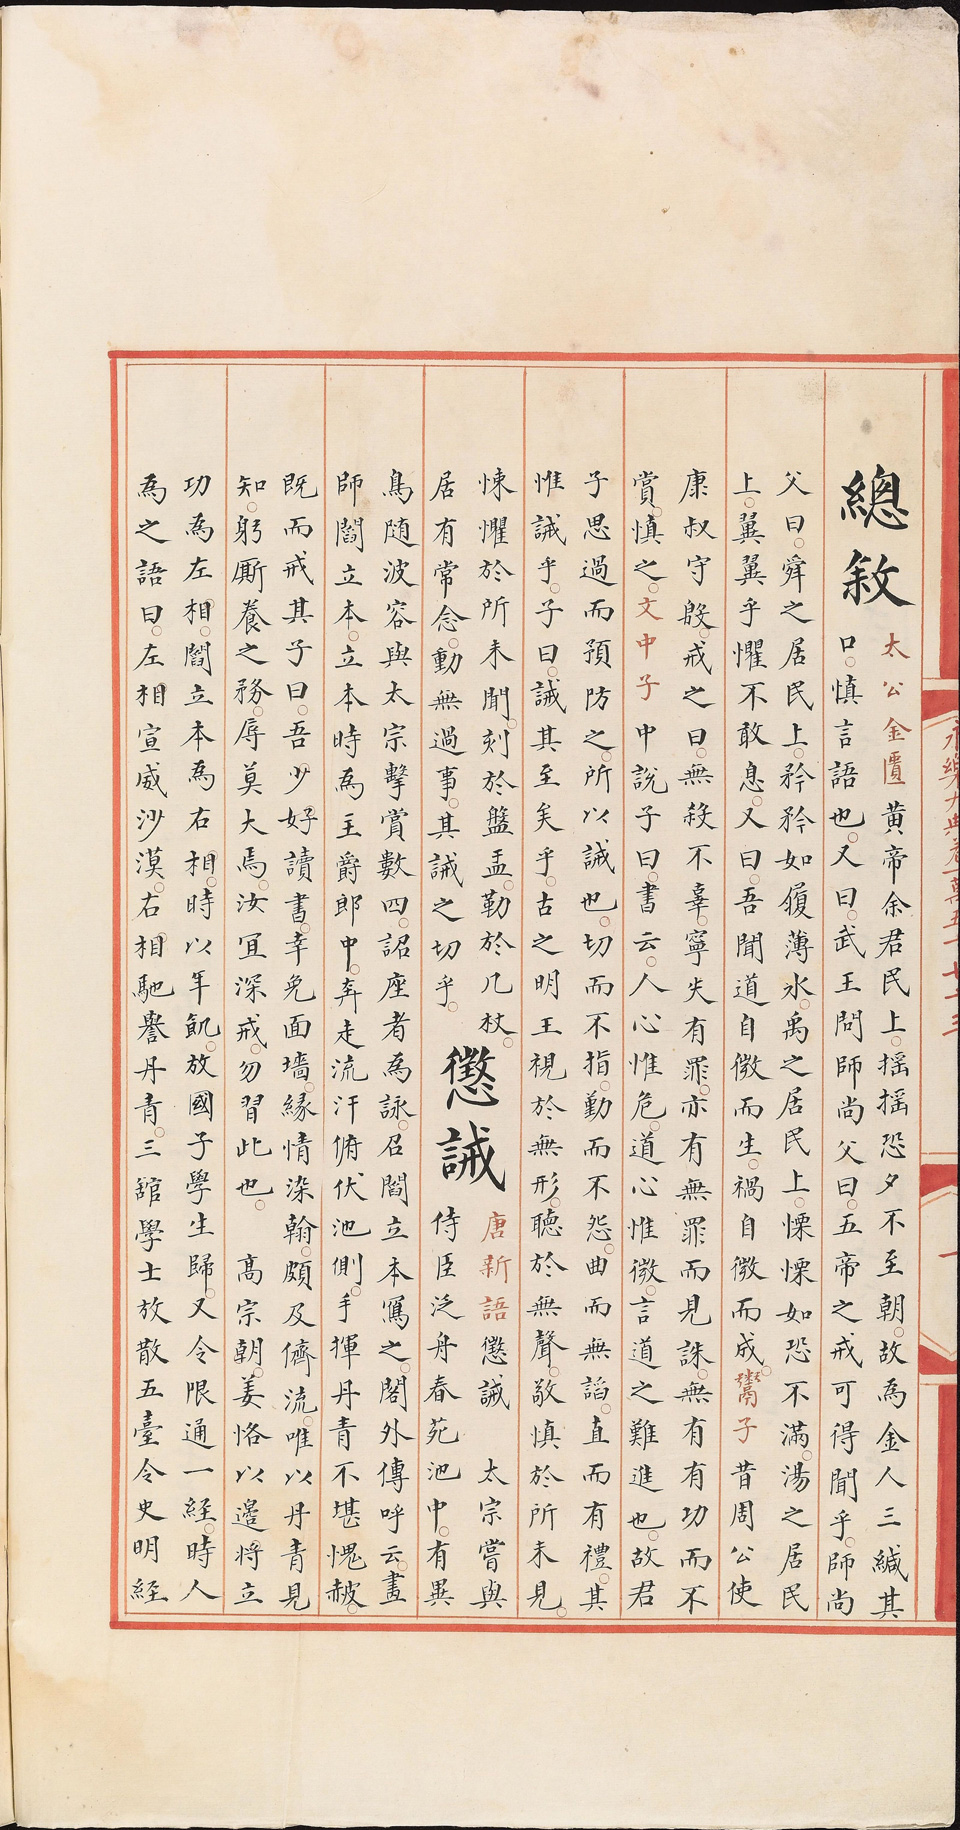 總敘
太公金匱黃帝余君民上。搖搖恐夕不至朝。故為金人三緘其
口。慎言語也。又曰。武王問師尚父曰。五帝之戒可得聞乎。師尚
父曰。舜之居民上。矜矜如履薄冰。禹之居民上。慄慄如恐不滿。湯之居民
上。翼翼乎懼不敢息。又曰。吾聞道自微而生。禍自微而成。鬻子昔周公使
康叔守殷。戒之曰。無殺不辜。寧失有罪。亦有無罪而見誅。無有有功而不
賞。慎之。文中子中說子曰。書云。人心惟危。道心惟微。言道之難進也。故君
子思過而預防之。所以誡也。切而不指。勤而不怨。曲而無諂。直而有禮。其
惟誡乎。子曰。誡其至矣乎。古之明王視於無形。聽於無聲。敬慎於所未見。
悚懼於所未聞。刻於盤盂。勒於几杖。
居有常念。動無過事。其誡之切乎。
懲誡
唐新語懲誡 太宗嘗與
侍臣泛舟春苑池中。有異
鳥随波容與太宗擊賞數四。詔座者為詠。召閻立本寫之。閣外傳呼云。畫
師閻立本。立本時為主爵郎中。奔走流汗俯伏池側。手揮丹青不堪愧赧。
既而戒其子曰。吾少好讀書。幸免面墻。緣情染翰。頗及儕流。唯以丹青見
知。躬廝養之務。辱莫大焉。汝宜深戒。勿習此也。 高宗朝。姜恪以邊將立
功為左相。閻立本為右相。時以年飢。放國子學生歸。又令限通一經。時人
為之語曰。左相宣威沙漠。右相馳譽丹青。三舘學士放散五臺令史明經